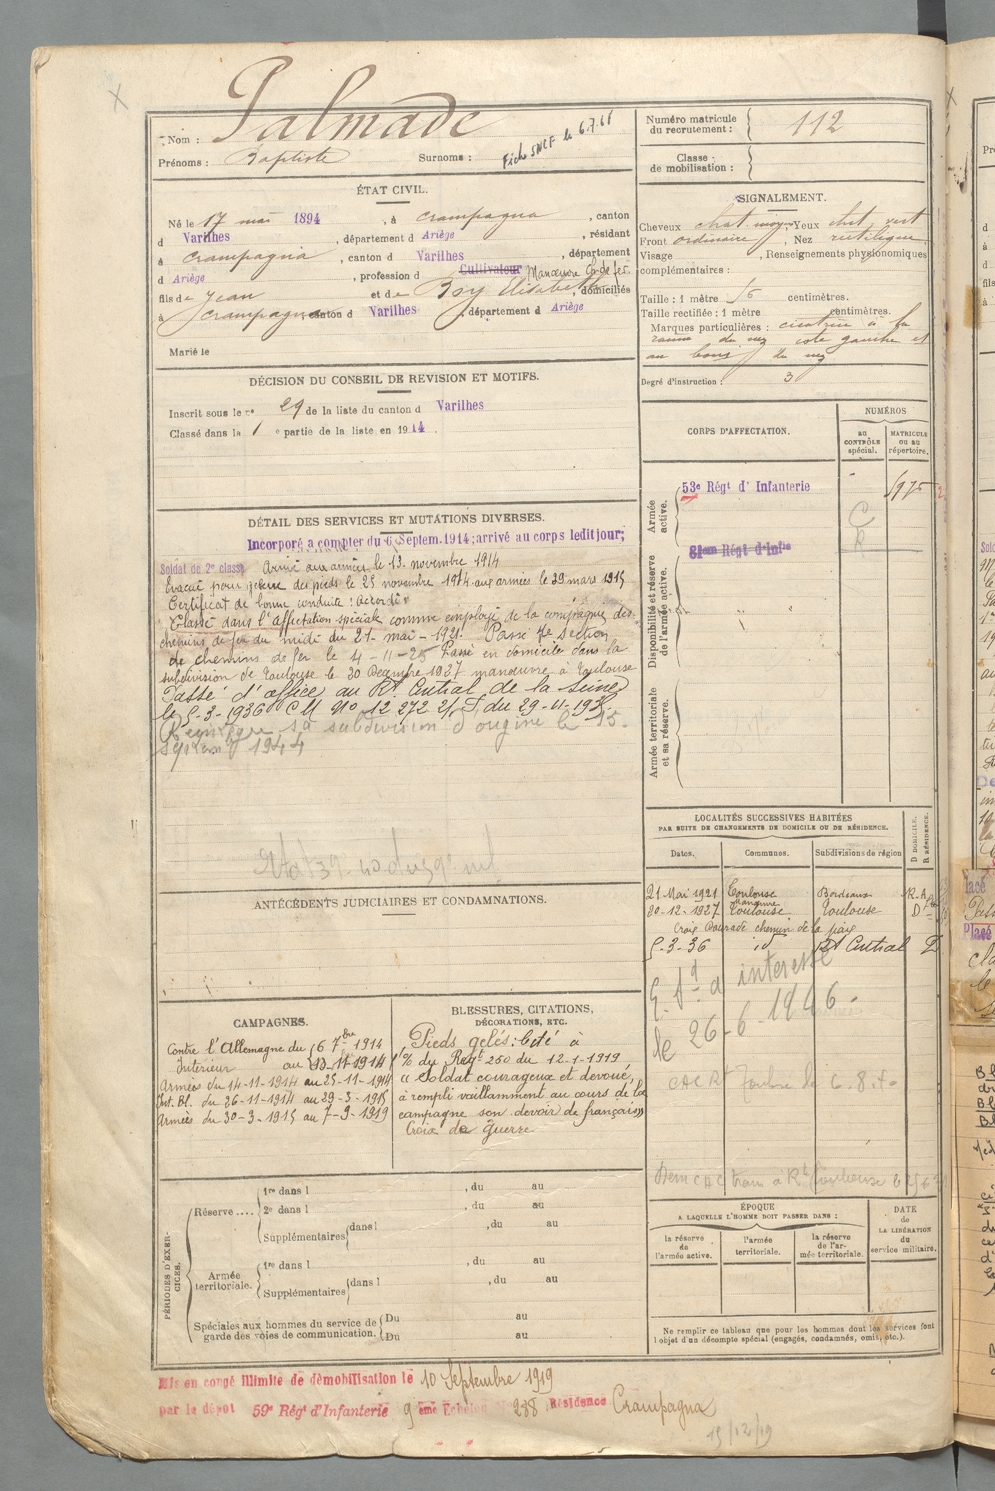 Nom : Palmade
Prénoms : Baptiste Surnoms : Fiche SNCF le 6.7.61
Numéro matricule du recrutement : 112
Classe de mobilisation :
ÉTAT CIVIL.
Né le 17 mai 1894, à Crampagna, canton
d Varilhes, département d Ariège, résidant
à Crampagna, canton d Varilhes, département
d Ariège, profession d Cultivateur Manœuvre Ch. de fer.
fils de Jean et de Bsy Elisabeth, domiciliés
à Crampagna canton d Varilhes, département d Ariège
Marié le
SIGNALEMENT.
Cheveux chat. moyen, Yeux chat. vert
Front ordinaire, Nez rectiligne
Visage , Renseignements physionomiques
complémentaires :
Taille : 1 mètre 56 centimètres.
Taille rectifiée : 1 mètre centimètres.
Marques particulières : cicatrice à la
racine du nez côté gauche et
au bout du nez
Degré d'instruction : 3
DÉCISION DU CONSEIL DE REVISION ET MOTIFS.
Inscrit sous le n° 29 de la liste du canton d Varilhes
Classé dans la 1 e partie de la liste en 1914.
CORPS D'AFFECTATION.
NUMÉROS
au CONTRÔLE spécial.
MATRICULE ou au répertoire.
Armée active.
53e Régt d'Infanterie
Disponibilité et réserve de l'armée active.
81eme Régt d'Infie
Armée territoriale et sa réserve.
DÉTAIL DES SERVICES ET MUTATIONS DIVERSES.
Incorporé a compter du 6 Septem. 1914; arrivé au corps ledit jour;
Soldat de 2e classe Arrivé aux armées le 13 novembre 1914
Evacué pour gelure des pieds le 25 novembre 1914 aux armées le 29 mars 1915
Certificat de bonne conduite : Accordé
Classé dans l'affectation spéciale comme employé de la compagnie des
chemins de fer du midi du 21-mai-1921. Passé 7e section
de chemins de fer le 4-11-25 Passé en domicile dans la
subdivision de Toulouse le 30 Decembre 1927 manœuvre à Toulouse
Passé d'office au Rt Central de la Seine
le 5-3-1936 CM No 12 272 2/S du 29-11-193
Réintègre sa subdivision d'origine le 15
1944
LOCALITÉS SUCCESSIVES HABITÉES
PAR SUITE DE CHANGEMENTS DE DOMICILE OU DE RÉSIDENCE.
Dates. Communes. Subdivisions de région D DOMICILE. R RÉSIDENCE.
21 Mai 1921 Toulouse Bordeaux R.A
30-12-1927 manœuvre Toulouse Toulouse D
Croix Daurade chemin de la paix
5-3-36 id Rt Central D
interessé
le 26-6-1946.
ANTÉCÉDENTS JUDICIAIRES ET CONDAMNATIONS.
CAMPAGNES.
Contre l'Allemagne du 6 7bre 1914
Intérieur au 13-11-1914
Armées du 14-11-1914 au 25-11-1914
Int. Bl. du 26-11-1914 au 29-3-1915
Armées du 30-3-1915 au 7-9-1919
BLESSURES, CITATIONS, DÉCORATIONS, ETC.
Pieds gelés : Cité à
l'% du Regt 250 du 12-1-1919
« Soldat courageux et devoué,
a rempli vaillamment au cours de la
campagne son devoir de français »
Croix de Guerre
PÉRIODES D'EXERCICES.
Réserve .... 1re dans l , du au
2e dans l , du au
Supplémentaires dans l , du au
Armée territoriale. 1re dans l , du au
Supplémentaires dans l , du au
Spéciales aux hommes du service de garde des voies de communication. Du au
Du au
ÉPOQUE
A LAQUELLE L'HOMME DOIT PASSER DANS :
la réserve de l'armée active.
l'armée territoriale.
la réserve de l'armée territoriale.
DATE de LA LIBÉRATION du service militaire.
Ne remplir ce tableau que pour les hommes dont les services font
l'objet d'un décompte spécial (engagés, condamnés, omis, etc.).
Mis en congé illimité de démobilisation le 10 Septembre 1919
par le dépot 59e Régt d'Infanterie 9 ème Echelon N° 288 Résidence Crampagna
15/12/19